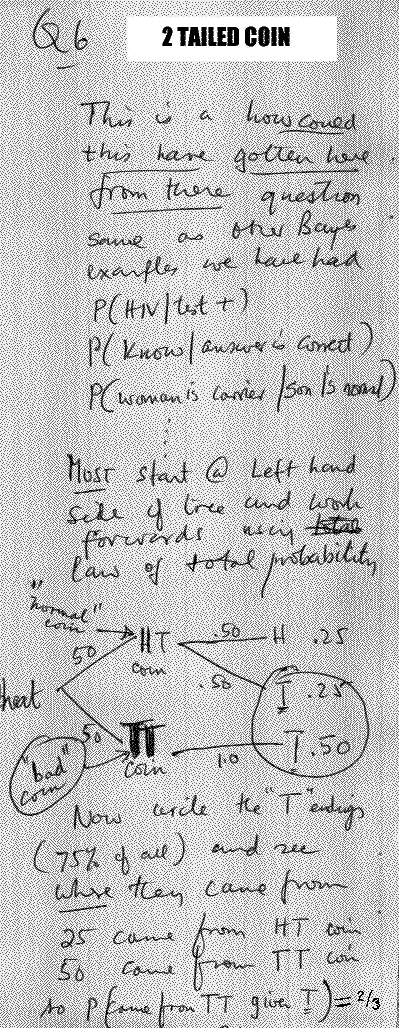 Q6
2 TAILED COIN
This is a how could
this have gotten here
from there question
same as other Bayes
examples we have had
P(HIV | test +)
P( Know | answer is correct )
P( woman is carrier | son is normal)
Must start @ left hand
side of tree and work
forwards using total
law of total probability
"normal"
coin
50
HT
coin
.50
H .25
.50
T .25
50
"bad"
coin
TT
coin
1.0
T .50
Now circle the "T" endings
(75% of all) and see
where they came from
25 came from HT coin
50 came from TT coin
so P(came from TT given T) = 2/3